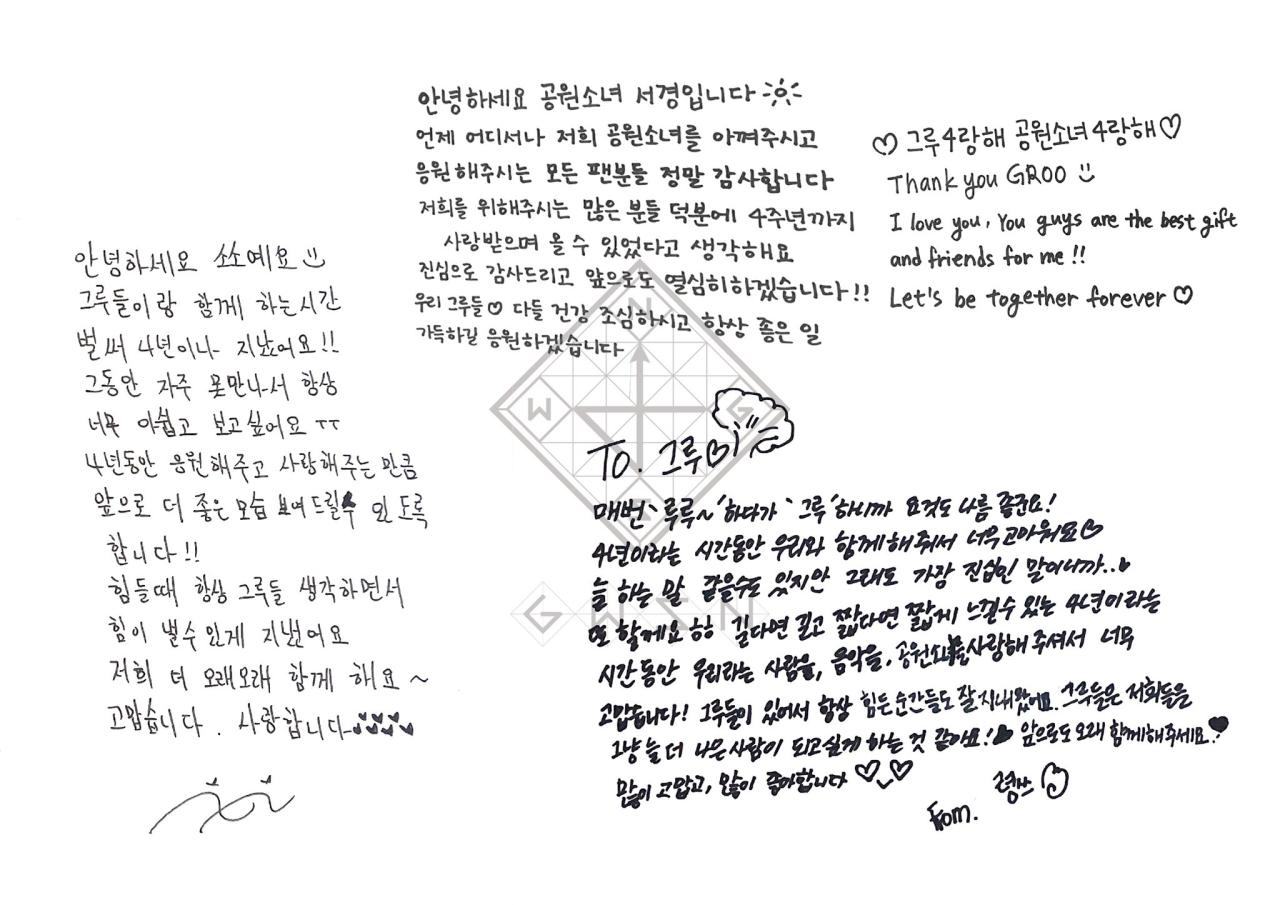 안녕하세요 쏘소예요
그루들이랑 함께 하는시간
벌써 4년이나 지났어요!!
그동안 자주 못만나서 항상
너무 아쉽고 보고싶어요 ㅜㅜ
4년동안 응원해주고 사랑해주는만큼
앞으로 더 좋은모습 보여드릴수 있도록
합니다!!
힘들때 항상 그루들 생각하면서
힘이 낼수있게 지냈어요
저희 더 오래오래 함께 해요~
고맙습니다. 사랑합니다
안녕하세요 공원소녀 서경입니다
언제 어디서나 저희 공원소녀를 아껴주시고
응원해주시는 모든 팬분들 정말 감사합니다
저희를 위해주시는 많은 분들 덕분에 4주년까지
사랑받으며 올 수 있었다고 생각해요
진심으로 감사드리고 앞으로도 열심히하겠습니다!!
우리 그루들♡ 다들 건강 조심하시고 항상 좋은 일
가득하길 응원하겠습니다
♡그루4랑해 공원소녀4랑해♡
Thank you GROO
I love you, You guys are the best gift
and friends for me!!
Let's be together forever♡
To. 그루♡
매번 '루루~'하다가 '그루'하니까 요것도 나름 좋군요!
4년이라는 시간동안 우리와 함께해줘서 너무고마워요♡
늘 하는 말 같을수도 있지만 그래도 가장 진심인 말이니까..
또 할게요ㅎㅎ 길다면 길고 짧다면 짧게 느낄수 있는 4년이라는
시간동안 우리라는 사람을, 음악을, 공원소녀를사랑해주셔서 너무
고맙습니다! 그루들이 있어서 항상 힘든순간들도 잘지내왔어요. 그루들은 저희들을
그냥 늘 더 나은사람이 되고싶게 하는 것 같아요! 앞으로도오래 함께해주세요!
많이 고맙고, 많이 좋아합니다
from. 령쓰
N
W G
S
G W S N